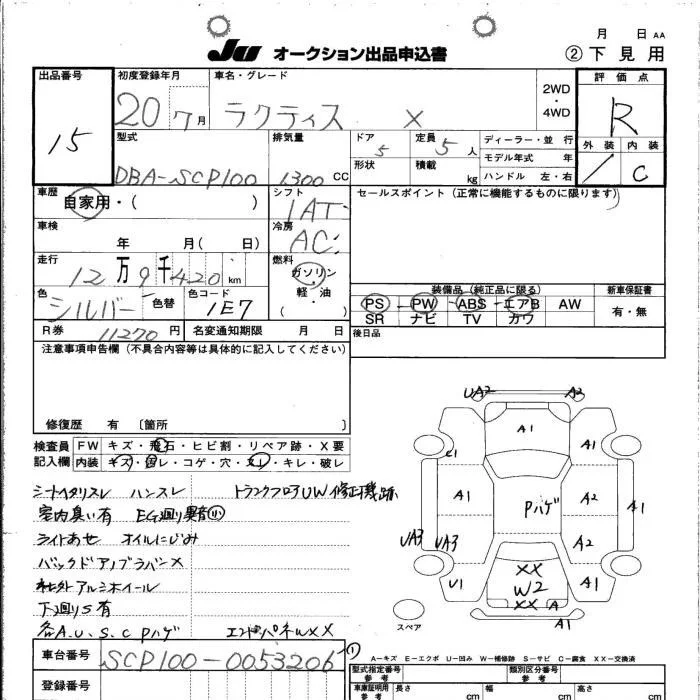 月 日 AA
JU オークション出品申込書
② 下見用
出品番号
15
初度登録年月
20 7月
車名・グレード
ラクティス X
2WD
・
4WD
評価点
R
外装 内装
/ C
型式
DBA-SCP100
排気量
1300 CC
ドア
5
定員
5人
形状
積載
kg
ディーラー・並行
モデル年式 年
ハンドル 左・右
車歴
自家用・( )
シフト
IAT
セールスポイント (正常に機能するものに限ります)
車検
年 月( 日)
冷房
AC
走行
12万9千420km
燃料
ガソリン
・
軽・油
( )
色
シルバー
色替
色コード
1E7
装備品 (純正品に限る)
PS PW ABS エアB AW
SR ナビ TV カワ
新車保証書
有・無
R券 11270円
名変通知期限 月 日
後日品
注意事項申告欄 (不具合内容等は具体的に記入してください)
修復歴 有 〔箇所 〕
検査員 FW キズ・飛石・ヒビ割・リペア跡・X要
記入欄 内装 キズ・汚レ・コゲ・穴・スレ・キレ・破レ
シートイタミスレ ハンスレ トランクフロアUW修正機跡
室内臭い有 EG廻り異音(1)
ライトあせ オイルにじみ
バックドアノブラバン×
社外アルミホイール
下廻りS有
各A.U.S.C Pハゲ エンドパネWXX
UA2 A2
A1
U1 A1
A1 Pハゲ A2 A1
UA3 UA3 A2
U1 XX A1
W2
XX A1
A
スペア
車台番号 SCP100-0053206
(1)
A-キズ E-エクボ U-凹み W-補修跡 S-サビ C-腐食 XX-交換済
登録番号
型式指定番号
参考
類別区分番号
参考
車庫証明用
参考
長さ cm
幅 cm
高さ cm